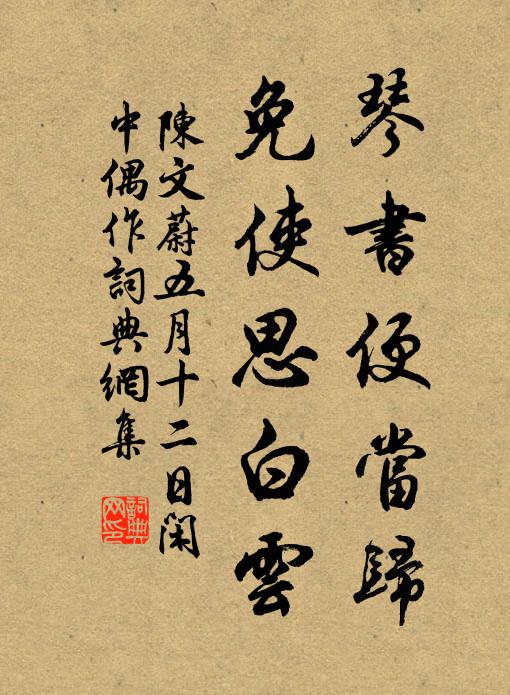 琴書便當歸
免使思白雲
陳文蔚五月十二日閑
中偶作詞典網集
詞典
网印